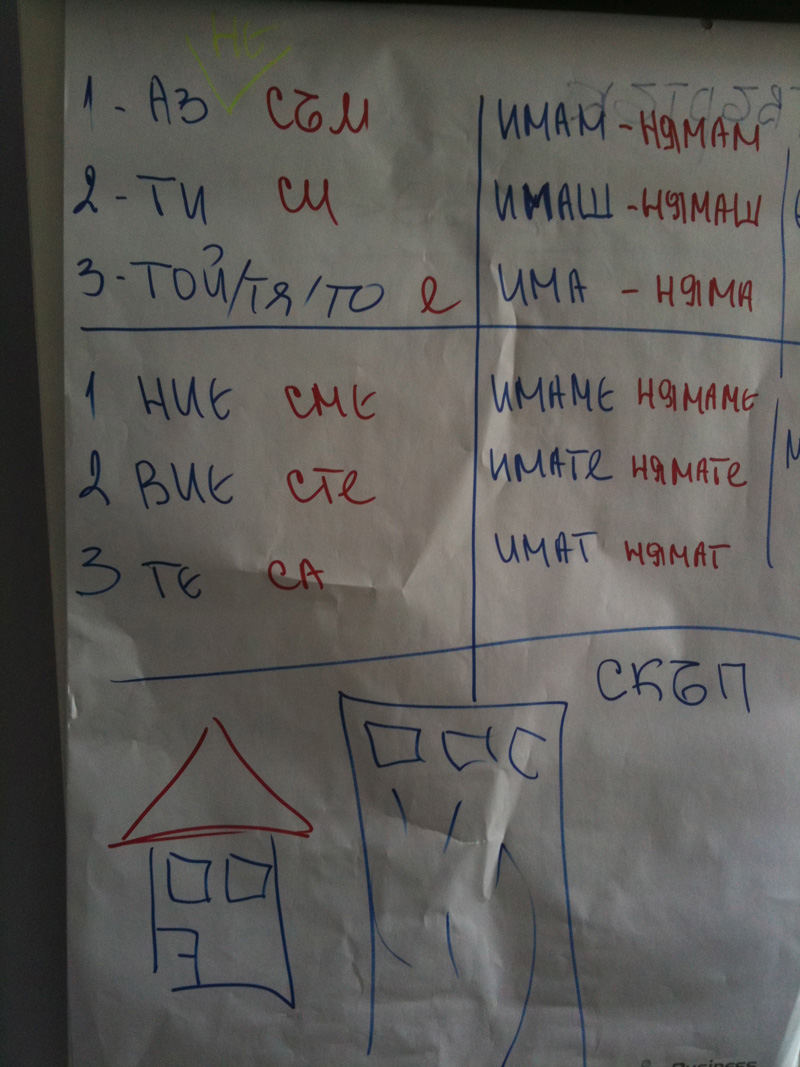 НЕ
1 - АЗ СЪМ ИМАМ - НЯМАМ
2 - ТИ СИ ИМАШ - НЯМАШ
3 - ТОЙ/ТЯ/ТО е ИМА - НЯМА
1 НИЕ СМЕ ИМАМЕ НЯМАМЕ
2 ВИЕ СТе ИМАТе НЯМАТе
3 ТЕ СА ИМАТ НЯМАТ
СКЪП
Business